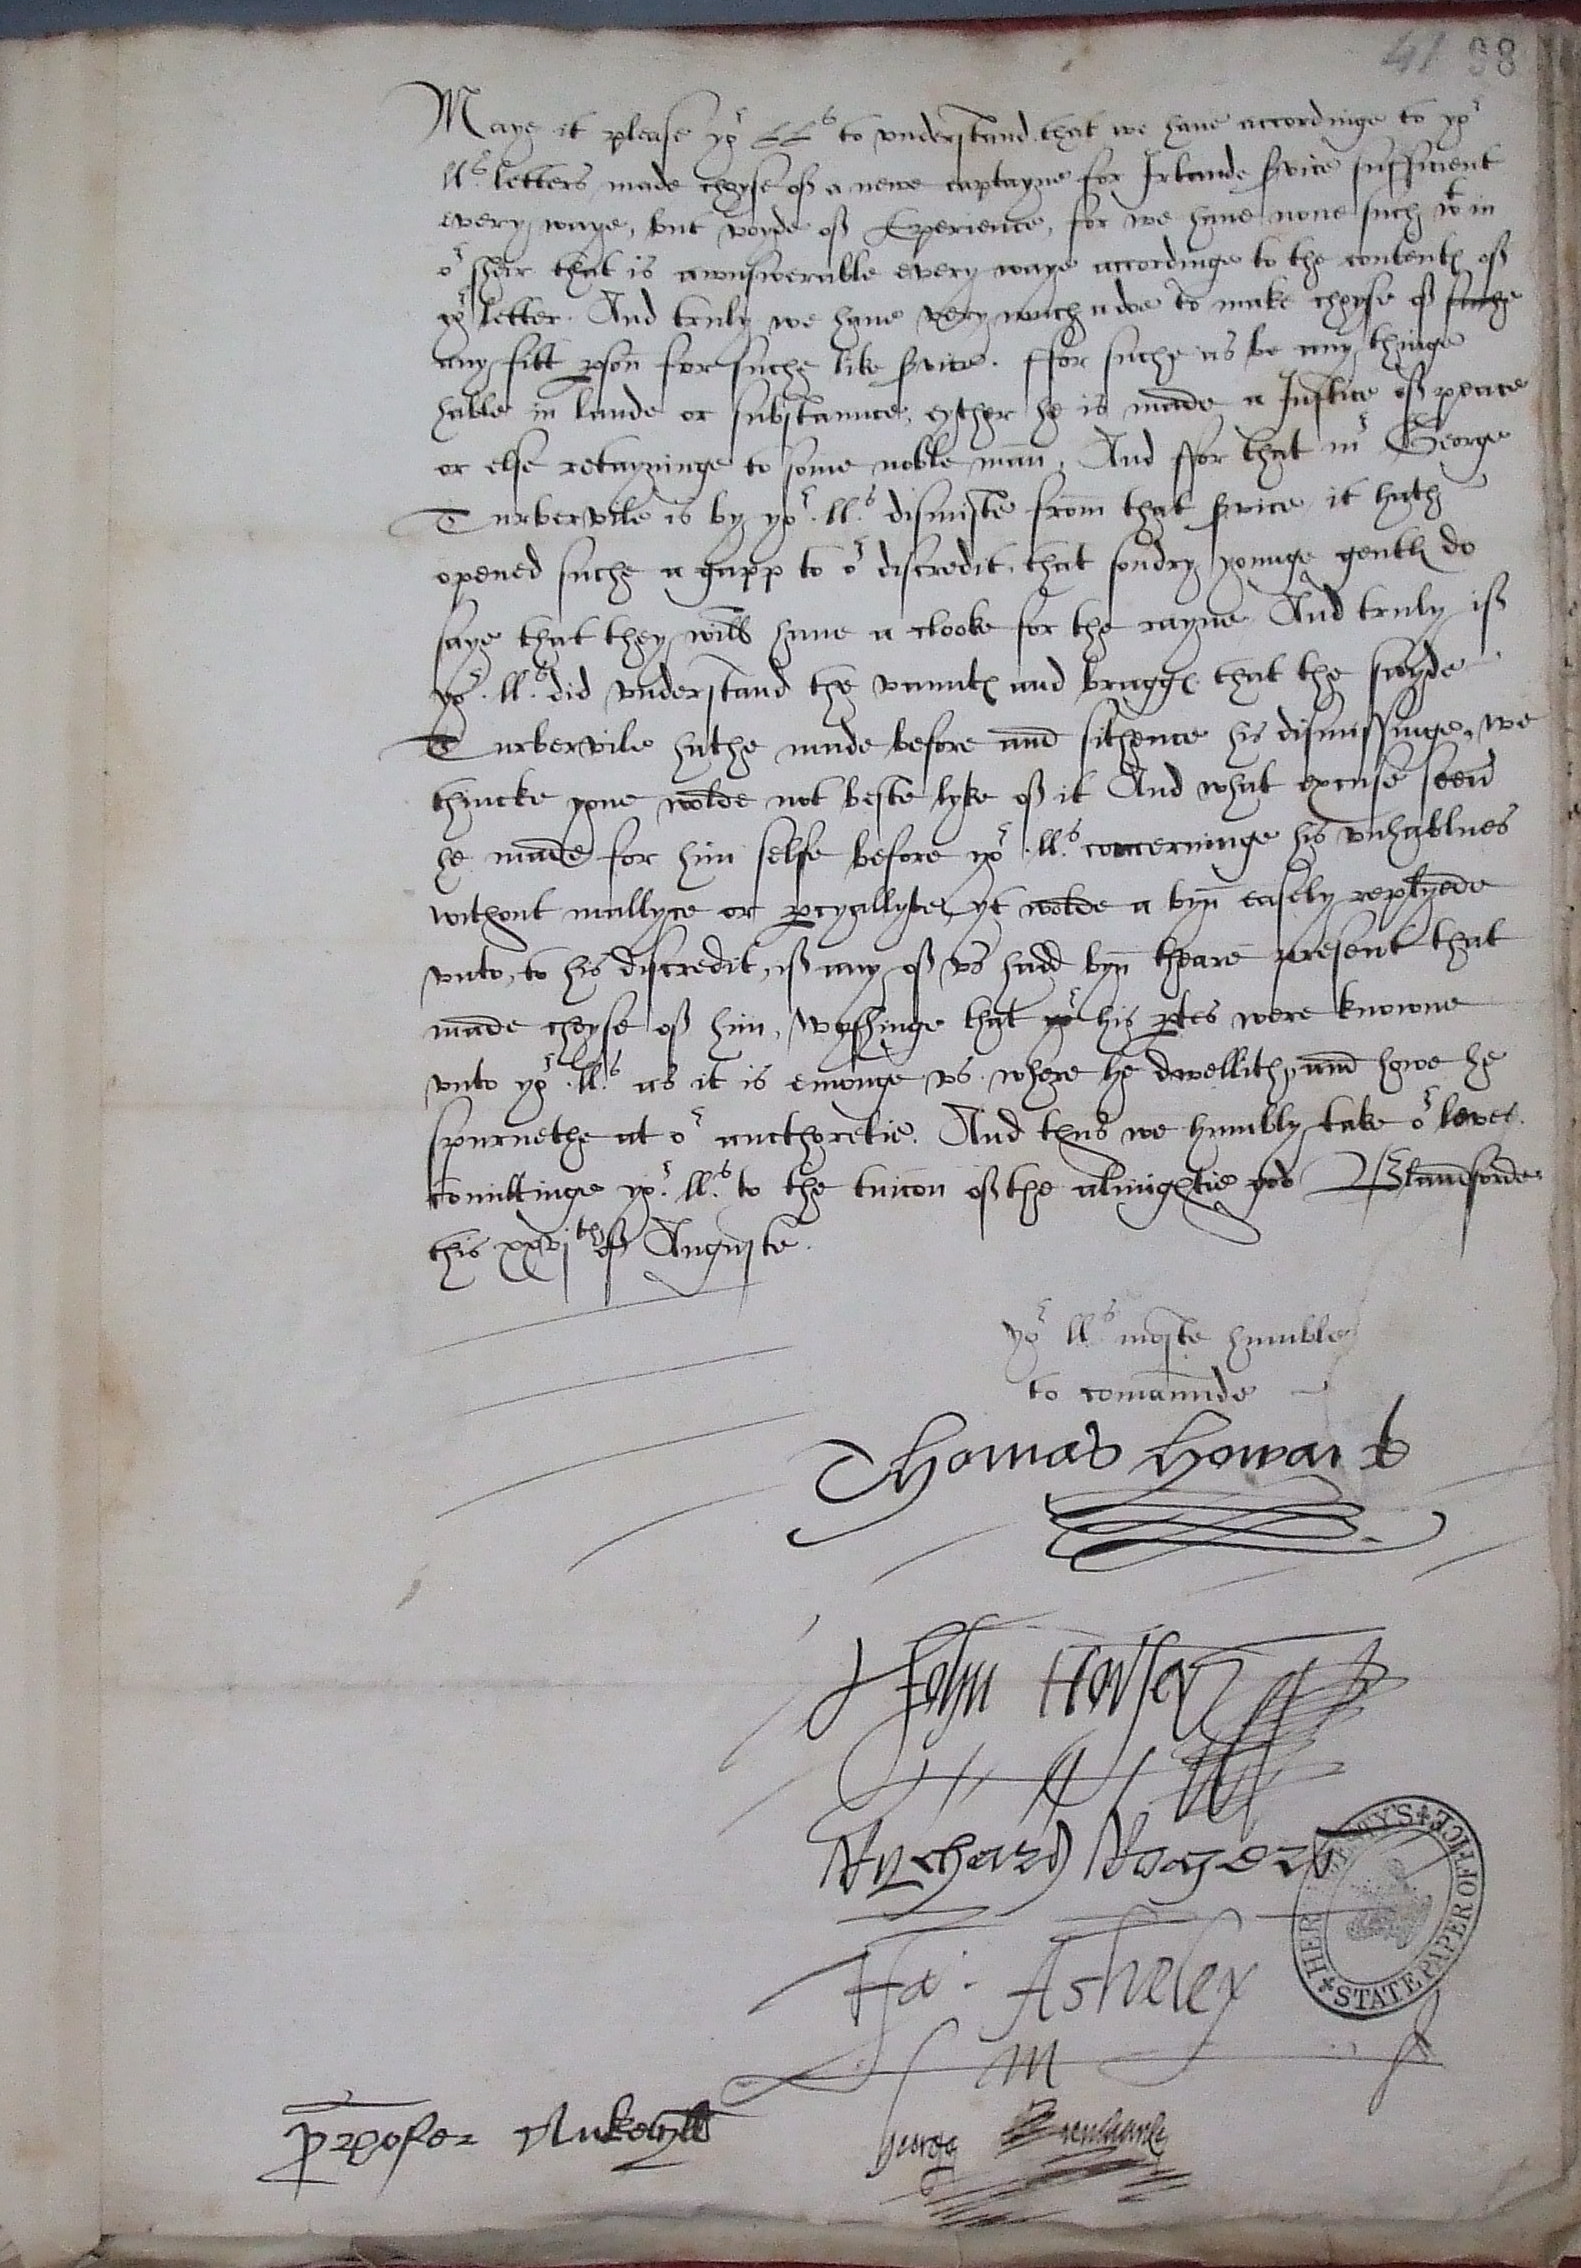 41 98
Maye it please yor LLs to vnderstand that we haue accordinge to yor
lls letters made choyse off a newe captayne for Irlande svice sufficient
every waye, but voyde off Experience, for we haue none such wt in
or sheir that is awnswerable every waye accordinge to the content off
yor letter. And truly we haue very much adoe to make choyse off suche
any fitt pson for suche like svice. ffor suche as be any thinge
hable in lande or substaunce, eyther he is made a Justice off peace
or else retayninge to some noble man, And ffor that mr George
Turbervile is by yor lls dismiste from that svice it hath
opened suche a gapp to or discredit, that sondry younge gentl do
saye that they will haue a clooke for the rayne And truly iff
yor lls did vnderstand the vaunt and bragg that the sayde
Turbervile hathe made before and sithence his dismissinge, we
thincke youe wolde not beste lyke off it And what excuse soeu
he made for him selfe before yor lls concerninge his vnhablnes
without mallyce or pcyallyte, yt wolde a byn easely replyede
vnto, to his discredit, iff any off vs hadd byn theare present that
made choyse off him, Wysshinge that yor his ptes were knowne
vnto yor lls as it is emonge vs where he dwellith, and howe he
spurnethe at or aucthoretie. And thus we humbly take or leves
comittinge yor lls to the tuicon off the almightie god Blandforde
this xxvjth off Auguste.
yor lls moste humble
to comaunde
Thomas Howard
John Horsey
Rychard Rogers
He. Asheley
George
HER MAJESTY'S STATE PAPER OFFICE